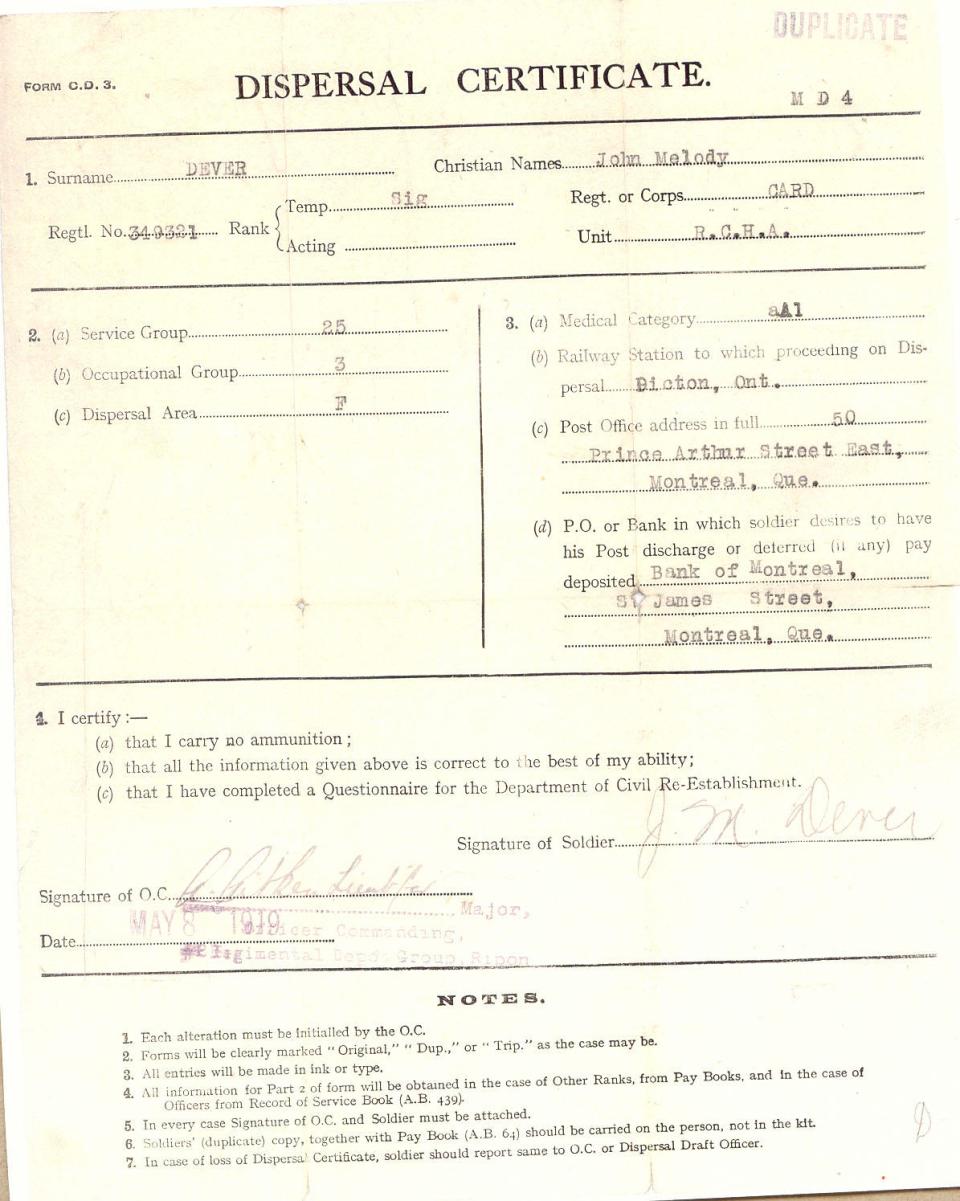 DUPLICATE
FORM C.D. 3.
DISPERSAL CERTIFICATE.
M D 4
1. Surname DEVER Christian Names John Melody
Regtl. No. 349321 Rank Temp. Sig Regt. or Corps CARD
Acting Unit R.C.H.A.
2. (a) Service Group 25
(b) Occupational Group 3
(c) Dispersal Area F
3. (a) Medical Category aA1
(b) Railway Station to which proceeding on Dis-
persal Picton, Ont.
(c) Post Office address in full 50
Prince Arthur Street East,
Montreal, Que.
(d) P.O. or Bank in which soldier desires to have
his Post discharge or deferred (if any) pay
deposited Bank of Montreal,
St James Street,
Montreal, Que.
4. I certify :—
(a) that I carry no ammunition ;
(b) that all the information given above is correct to the best of my ability;
(c) that I have completed a Questionnaire for the Department of Civil Re-Establishment.
Signature of Soldier J. M. Dever
Signature of O.C.
Major,
Date MAY 8 1919 Officer Commanding,
Regimental Depot Group, Ripon
NOTES.
1. Each alteration must be initialled by the O.C.
2. Forms will be clearly marked "Original," "Dup.," or "Trip." as the case may be.
3. All entries will be made in ink or type.
4. All information for Part 2 of form will be obtained in the case of Other Ranks, from Pay Books, and in the case of
Officers from Record of Service Book (A.B. 439).
5. In every case Signature of O.C. and Soldier must be attached.
6. Soldiers' (duplicate) copy, together with Pay Book (A.B. 64) should be carried on the person, not in the kit.
7. In case of loss of Dispersal Certificate, soldier should report same to O.C. or Dispersal Draft Officer.